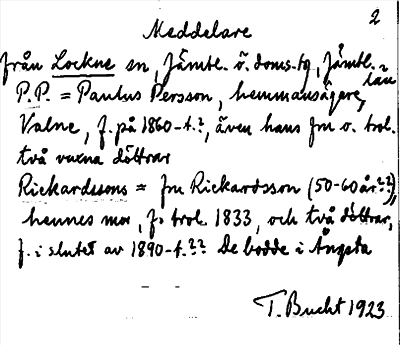 2
Meddelare
från Lockne sn, Jämtl. ö. doms-tg, Jämtl. län
P.P. = Paulus Persson, hemmansägare,
Valne, f. på 1860-t.?, även hans fru o. trol.
två vuxna döttrar
Rickardssons = fru Rickardsson (50-60 år??),
hennes mor, f. trol. 1833, och två döttrar,
f. i slutet av 1890-t.?? De bodde i Ångsta
T. Bucht 1923